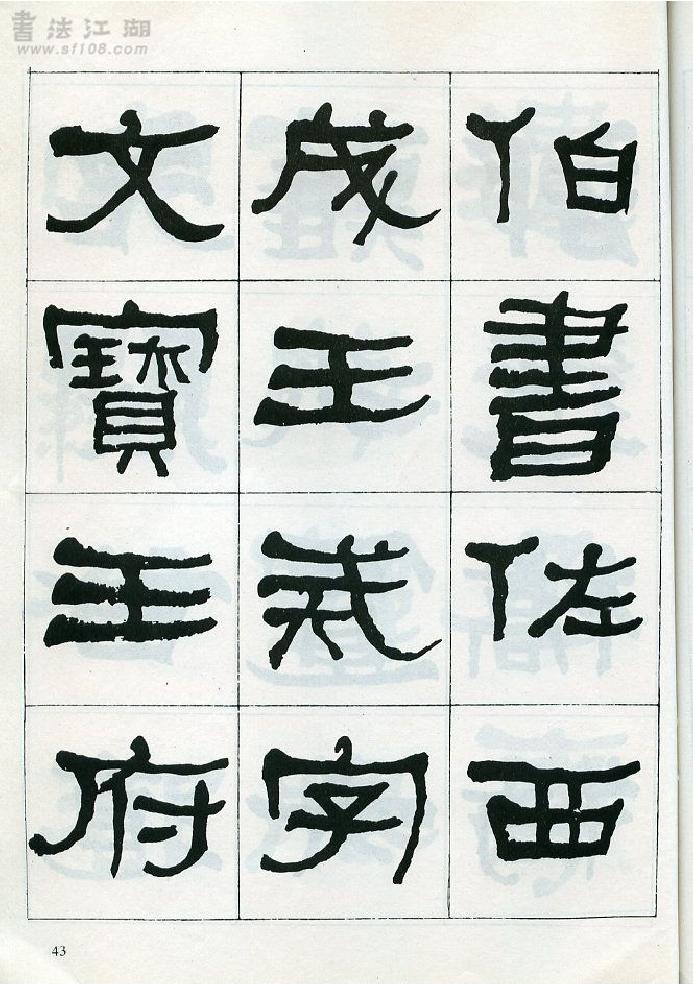 書法江湖
www.sf108.com
伯書佐西
成王戒字
文寶王府
43